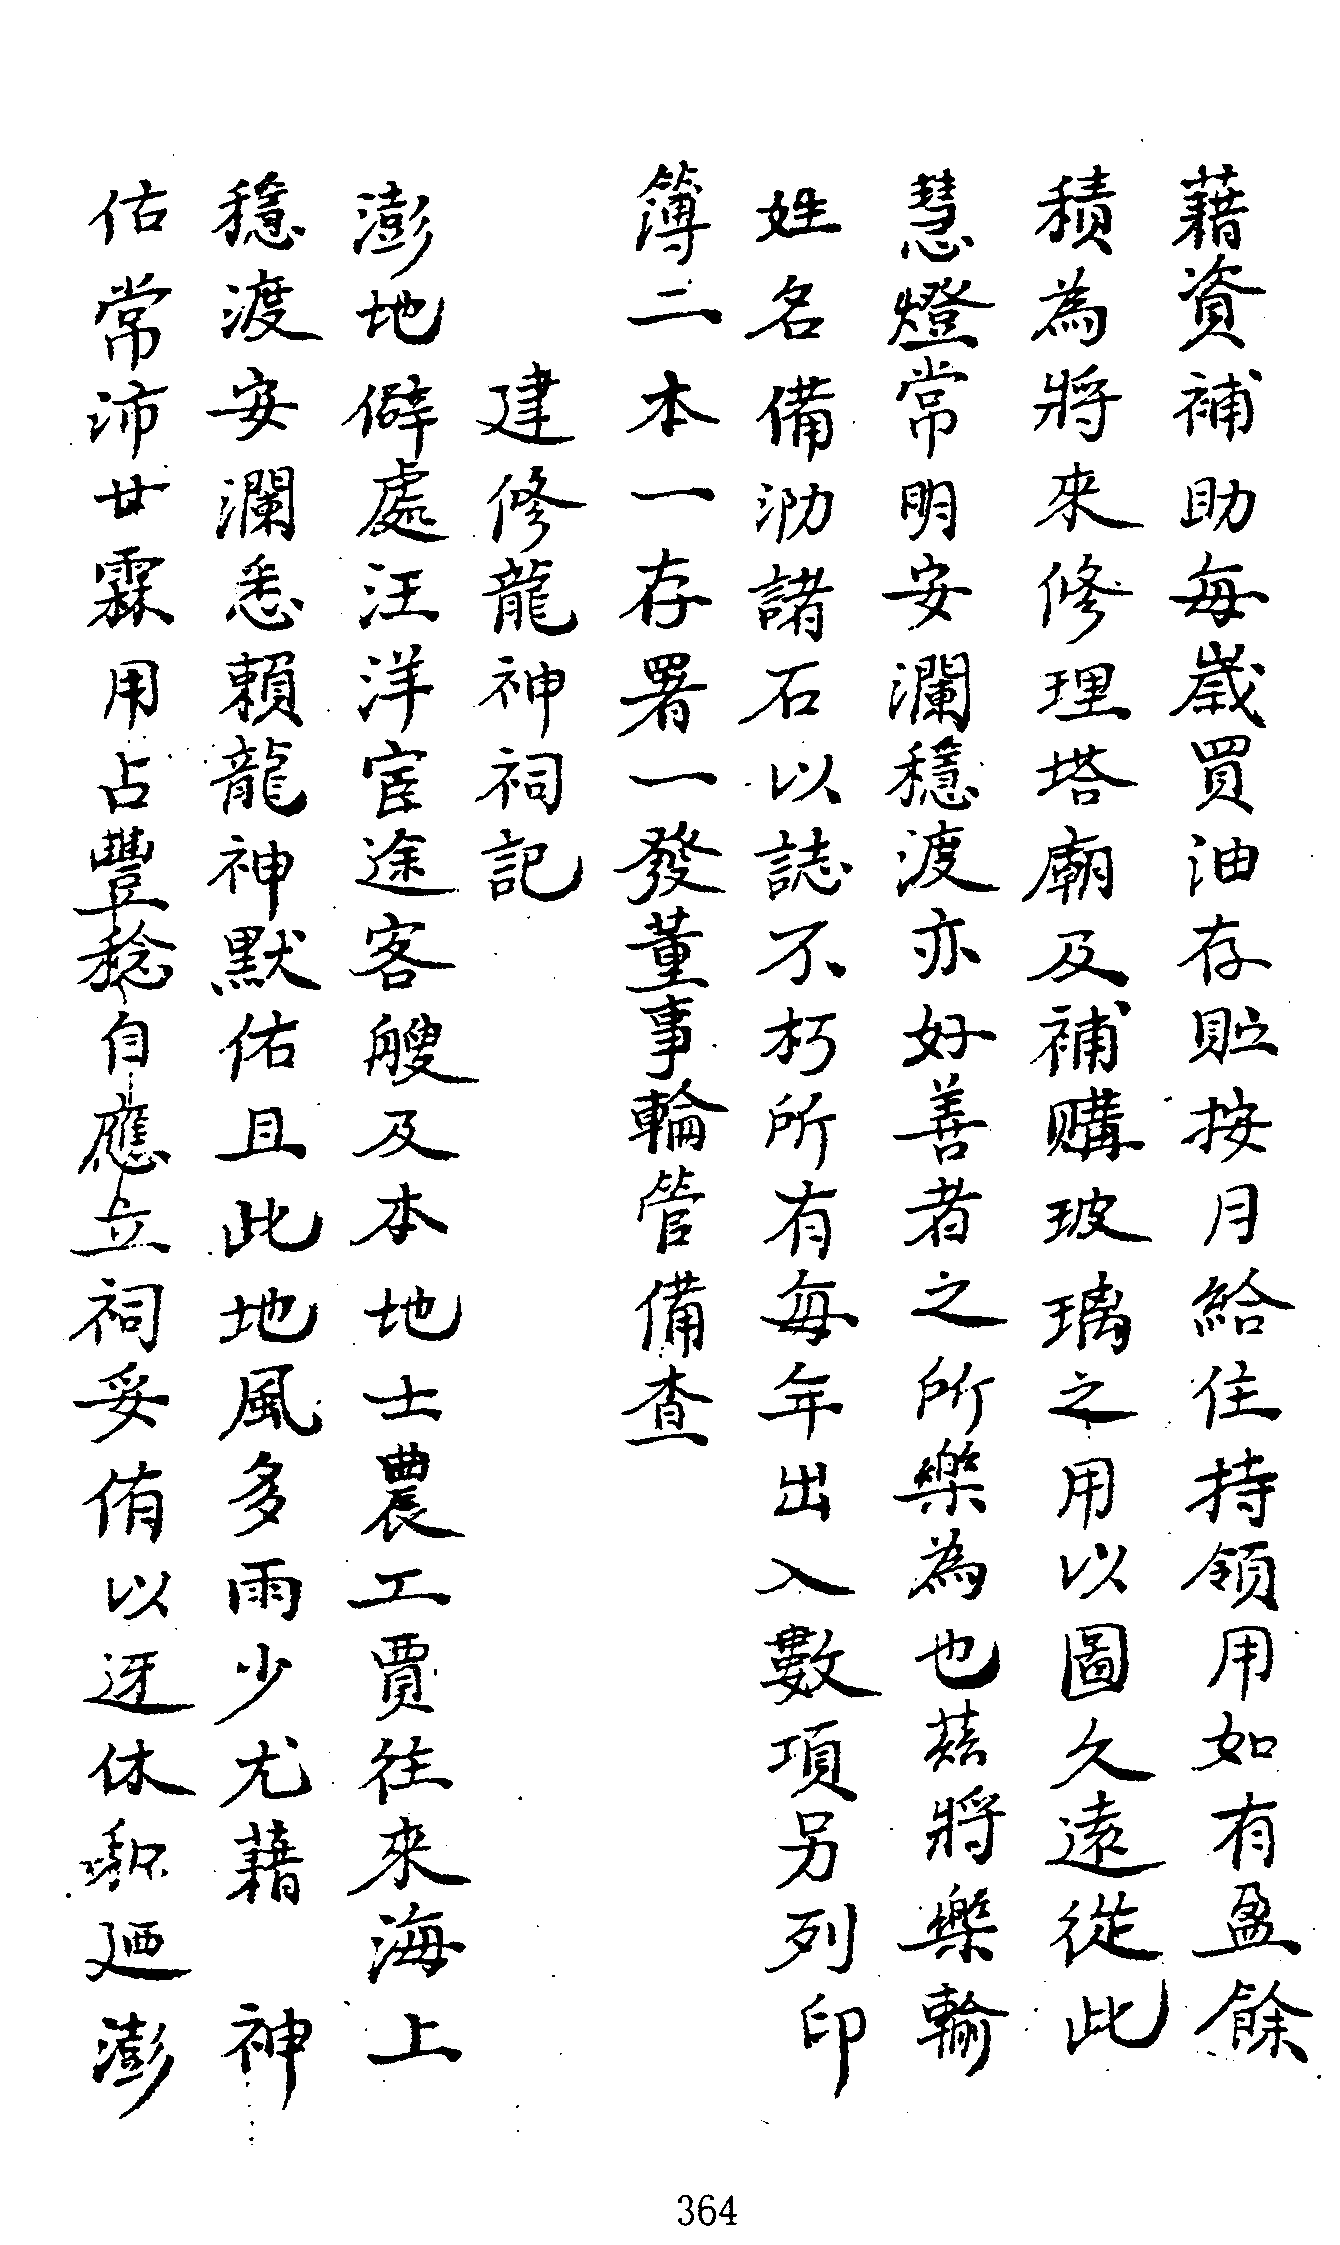 藉資補助每歲買油存貯按月給住持領用如有盈餘
積為將來修理塔廟及補購玻璃之用以圖久遠從此
慧燈常明安瀾穩渡亦好善者之所樂為也茲將樂輸
姓名備泐諸石以誌不朽所有每年出入數項另列印
簿二本一存署一發董事輪管備查
建修龍神祠記
澎地僻處汪洋宦途客艘及本地士農工賈往來海上
穩渡安瀾悉賴龍神默佑且此地風多雨少尤藉 神
佑常沛甘霖用占豐稔自應立祠妥侑以迓休廼澎
364